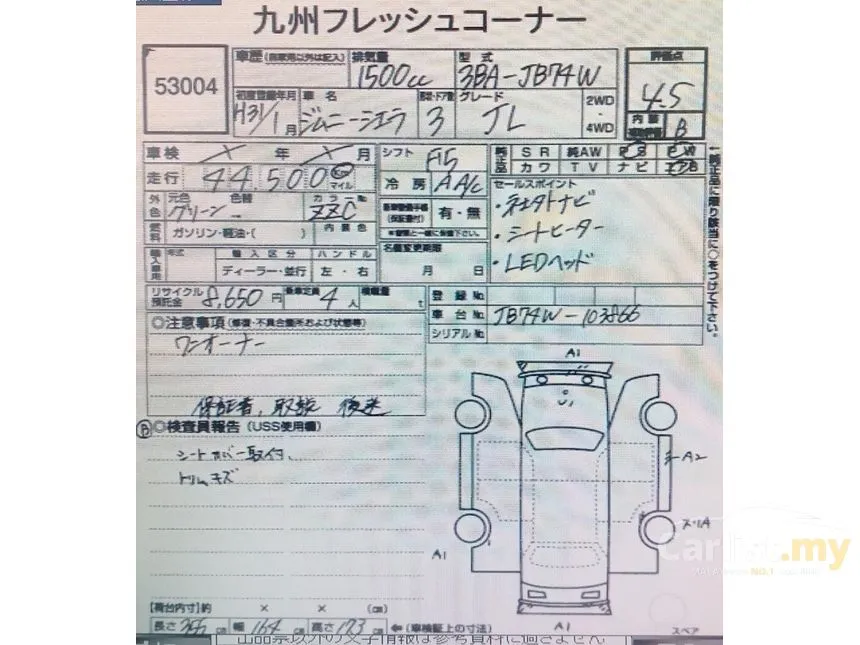 九州フレッシュコーナー
53004
車歴(自家用以外は記入)
排気量 1500cc
型式 3BA-JB74W
評価点 4.5
初度登録年月 H31/1月
車名 ジムニーシエラ
3
グレード JL
2WD・4WD
内装 B
車検 × 年 × 月
シフト F15
純正品 SR 純AW PS PW
カワ TV ナビ
走行 44,500 km マイル
冷房 AAC
外色 元色 グリーン 色替
カラーNo. ZZC
有・無
セールスポイント
・社外ナビ
・シートヒーター
・LEDヘッド
←純正品に限り該当に○をつけて下さい。
燃料 ガソリン・軽油・( ) 内装色
輸入車用 年式 輸入区分 ハンドル
ディーラー・並行 左・右
名義変更期限
月 日
リサイクル預託金 8,650円 乗車定員 4人 積載量 t
登録No.
車台No. JB74W-103866
シリアルNo.
◎注意事項(修復・不具合箇所および状態等)
ワンオーナー
保証書、取説 後送
◎検査員報告(USS使用欄)
シートカバー取付、
トリムキズ
A1
A2
A1
A1
【荷台内寸】約 × × (cm)
長さ 355 cm 幅 164 cm 高さ 173 cm ←(車検証上の寸法)
スペア
Carlist.my